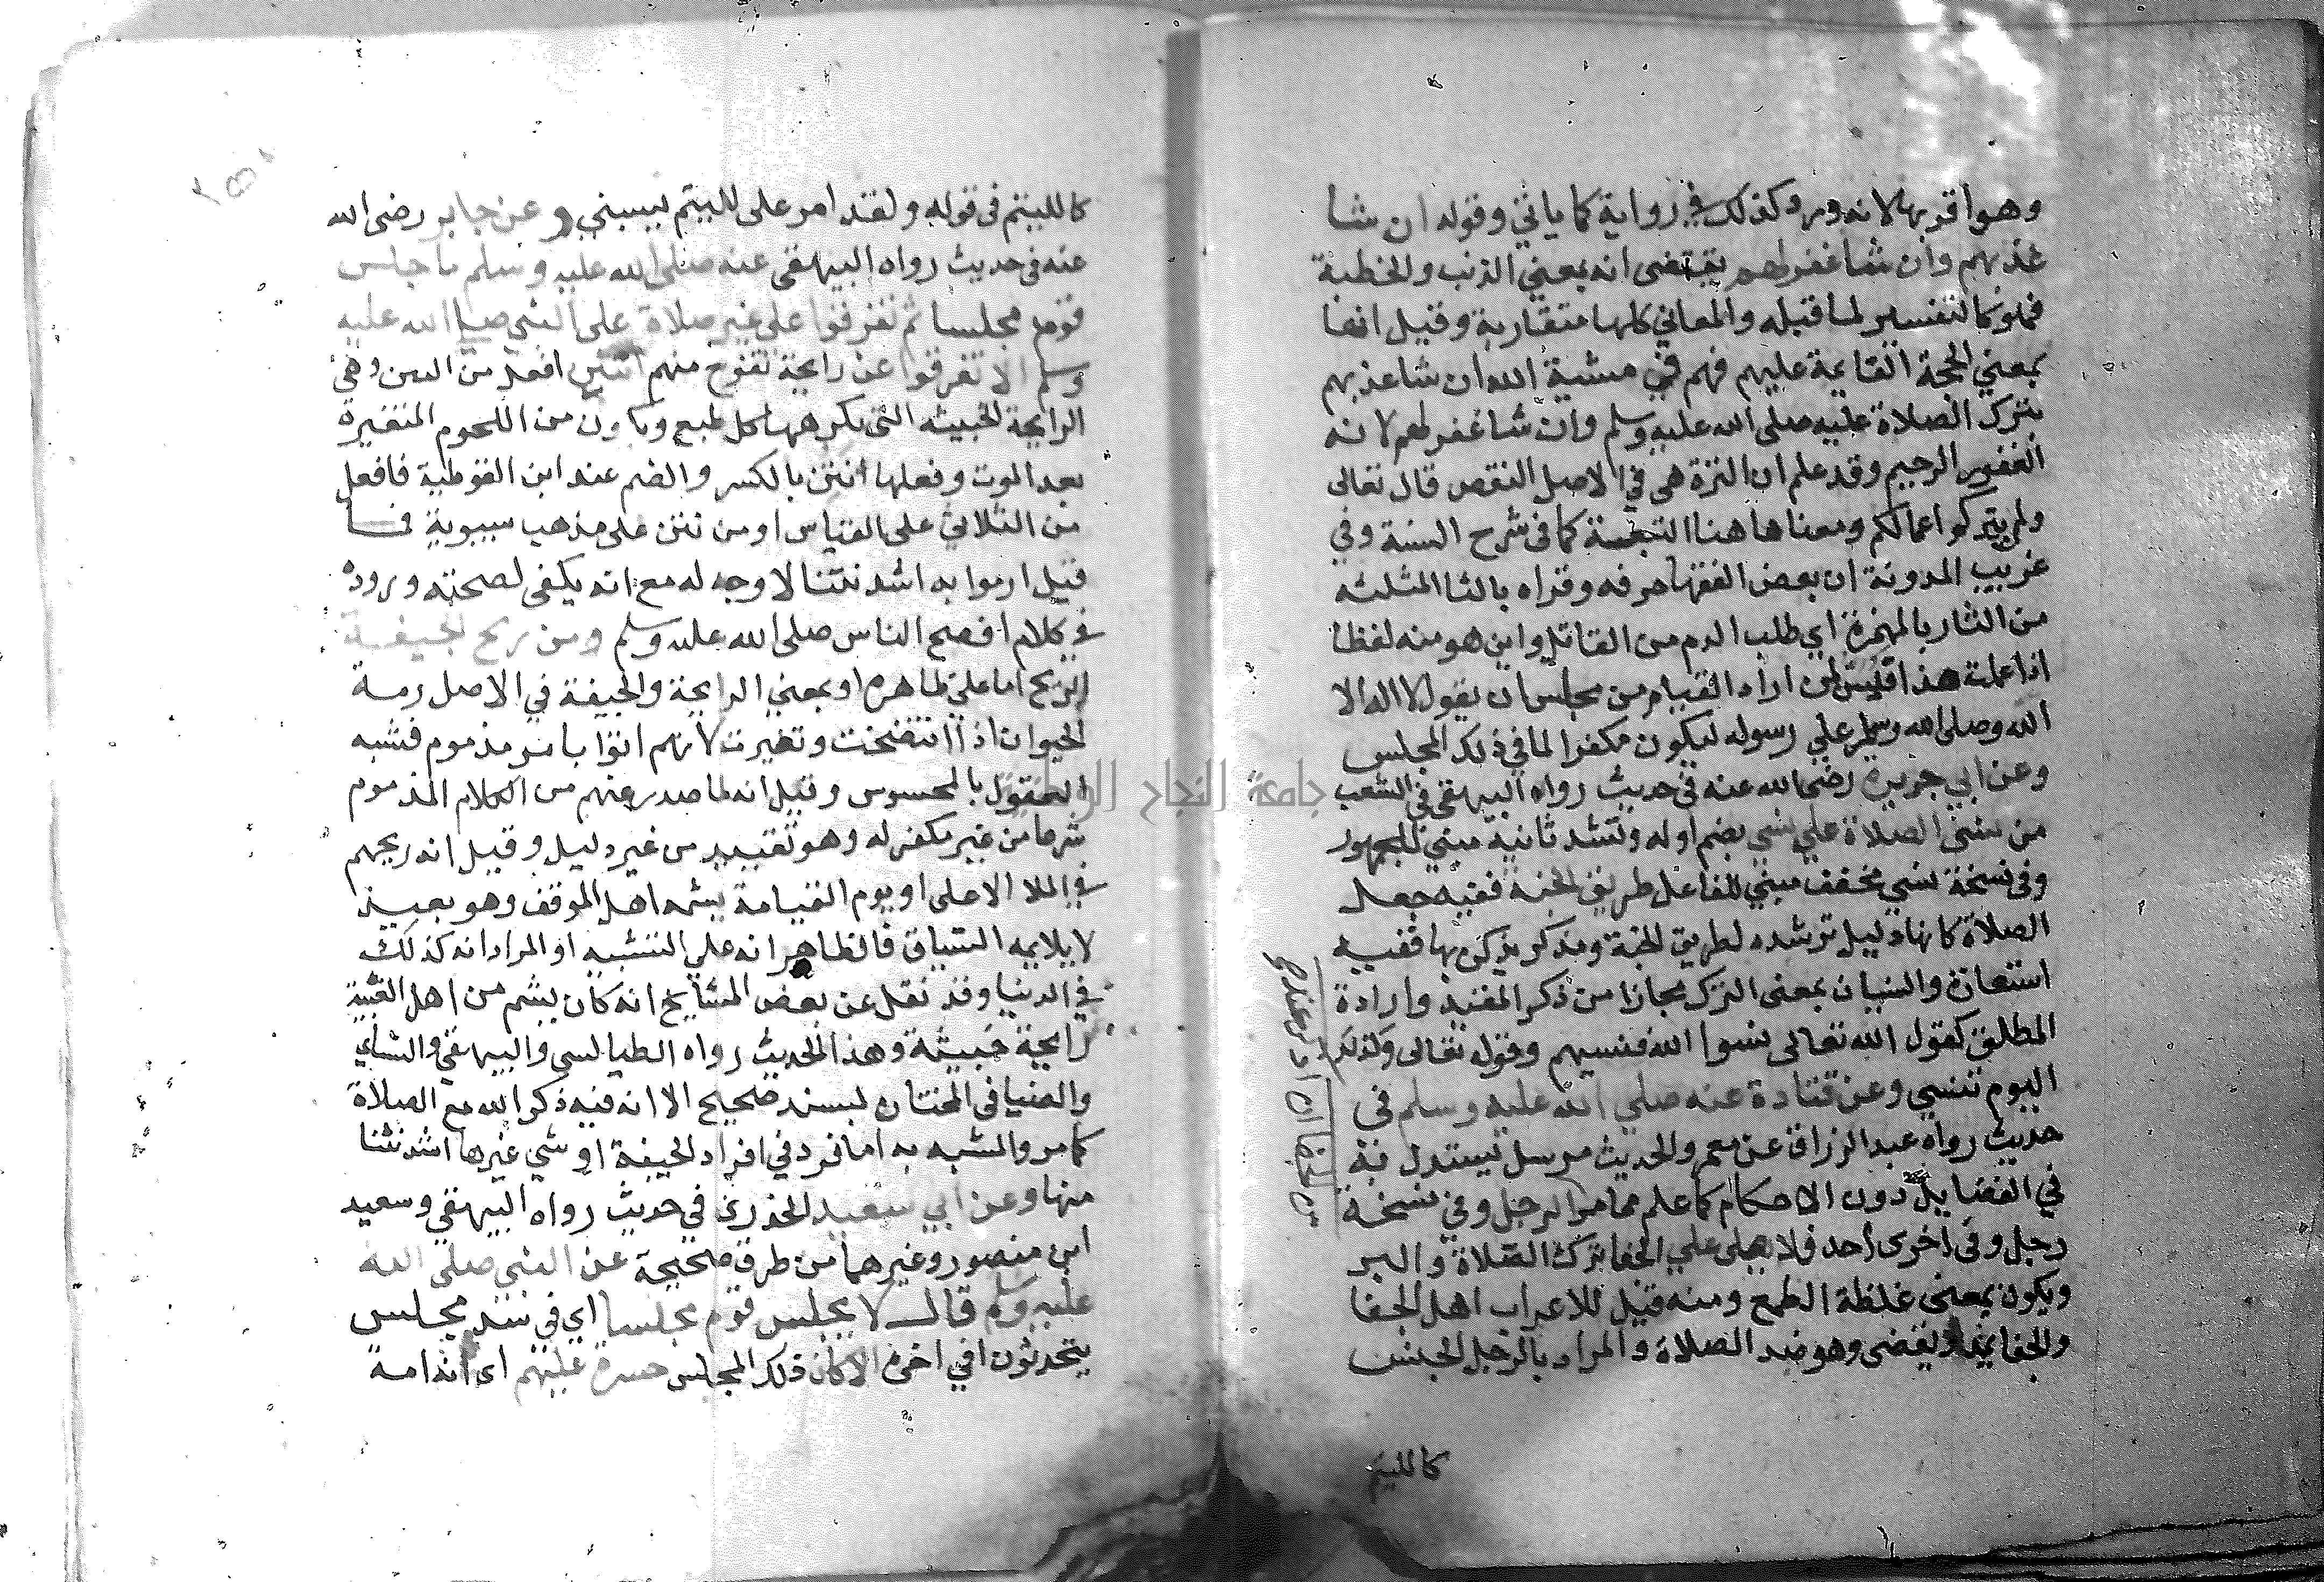 وهو اقربها لانه ورد كذلك في رواية كما ياتي وقوله ان شا
عذبهم وان شا غفر لهم يقتضى انه بمعني الذنب والخطية
فهو كالتفسير لما قبله والمعاني كلها متقاربة وقيل انها
بمعني الحجة القاعة عليهم فهم في مشية الله ان شا عذبهم
بترك الصلاة عليه صلى الله عليه وسلم وان شا غفر لهم لانه
الغفور الرحيم وقد علم ان الترة هي في الاصل النقص قال تعالى
ولم يتركم اعمالكم ومعناها هنا التبعة كما فى شرح السنة وفي
غريب المدونة ان بعض الفقها حرفه وقراه بالثا المثلثه
من الثار بالهمزة اي طلب الدم من القاتل واين هو منه لفظا
اذا علمت هذا فليس لمن اراد القيام من مجلس ان يقول لا اله الا
الله وصلى الله وسلم علي رسوله ليكون مكفرا لما في ذلك المجلس
وعن ابي هريرة رضى الله عنه فى حديث رواه البيهقي في الشعب
من نسى الصلاة علي نسي بضم اوله وتشد ثانية مبني للمجهول
وفى نسخة نسي مخفف مبني للفاعل طريق الجنة ففيه جعل
الصلاة كانها دليل ترشده لطريق الجنة ومذكر يذكر بها ففيه
استعارة والنسيان بمعنى الترك مجازا من ذكر المقيد وارادة
المطلق كقول الله تعالى نسوا الله فنسيهم وقوله تعالى وكذلك
اليوم تنسي وعن قتادة عنه صلي الله عليه وسلم فى
حديث رواه عبد الرزاق عن معمر والحديث مرسل يستدل به
في الفضايل دون الاحكام كما علم مما مر الرجل وفي نسخة
رجل وفى اخرى احد فلا يصلى علي الجفا ترك الصلاة والبر
ويكون بمعنى غلظة الطبع ومنه قيل للاعراب اهل الجفا
والجفا يمد ويقصى وهو ضد الصلاة والمراد بالرجل الجنس
كالليتم
كالليتم فى قوله ولقد امر على للييتم يسبني وعن جابر رضى الله
عنه فى حديث رواه البيهقى عنه صلى الله عليه وسلم ما جلس
قوم مجلسا ثم تفرقوا على غير صلاة على النبي صلى الله عليه
وسلم الا تفرقوا عن رايحة تفوح منهم انتن افعل من النتن وهي
الرايحة الخبيثه التى يكرهها كل طبع ويكون من اللحوم المتغيرة
بعد الموت وفعلها انتن بالكسر والضم عند ابن القوطية فافعل
من الثلاثي على القياس او من نتن على مذهب سيبوية فما
قيل ارموا به اشد نتنا لا وجه له مع انه يكفى لصحته وروده
في كلام افصح الناس صلى الله عليه وسلم ومن ريح الجيفة
الريح اما علي ظاهره او بمعني الرايحة والجيفة في الاصل رمة
الحيوان اذا انتفخت وتغيرت لانهم اتوا بامر مذموم فشبه
المعقول بالمحسوس وقيل انه لما صدر عنهم من الكلام المذموم
شرعا من غير مكفر له وهو تقييد من غير دليل وقيل انه ريحهم
في الملا الاعلى او يوم القيامة يشمه اهل الموقف وهو بعيد
لا يلايمه السياق فالظاهر انه علي التشبيه او المراد انه كذلك
في الدنيا وقد نقل عن بعض المشايخ انه كان يشم من اهل الغيبة
رايحة خبيثة وهذا الحديث رواه الطيالسى والبيهقي والنساي
والضيا فى المختاره بسند صحيح الا انه فيه ذكر الله مع الصلاة
كما مر والمشبه به اما فرد في افراد الجيفة او شي غيرها اشد نتنا
منها وعن ابي سعيد الخدرى في حديث رواه البيهقي وسعيد
ابن منصور وغيرهما من طرق صحيحة عن النبي صلى الله
عليه وسلم قال لا يجلس قوم مجلسا اي في مجلس
يتحدثون فى اخره الا كان ذلك المجلس حسرة عليهم اى ندامة
جامعة النجاح الوطنية